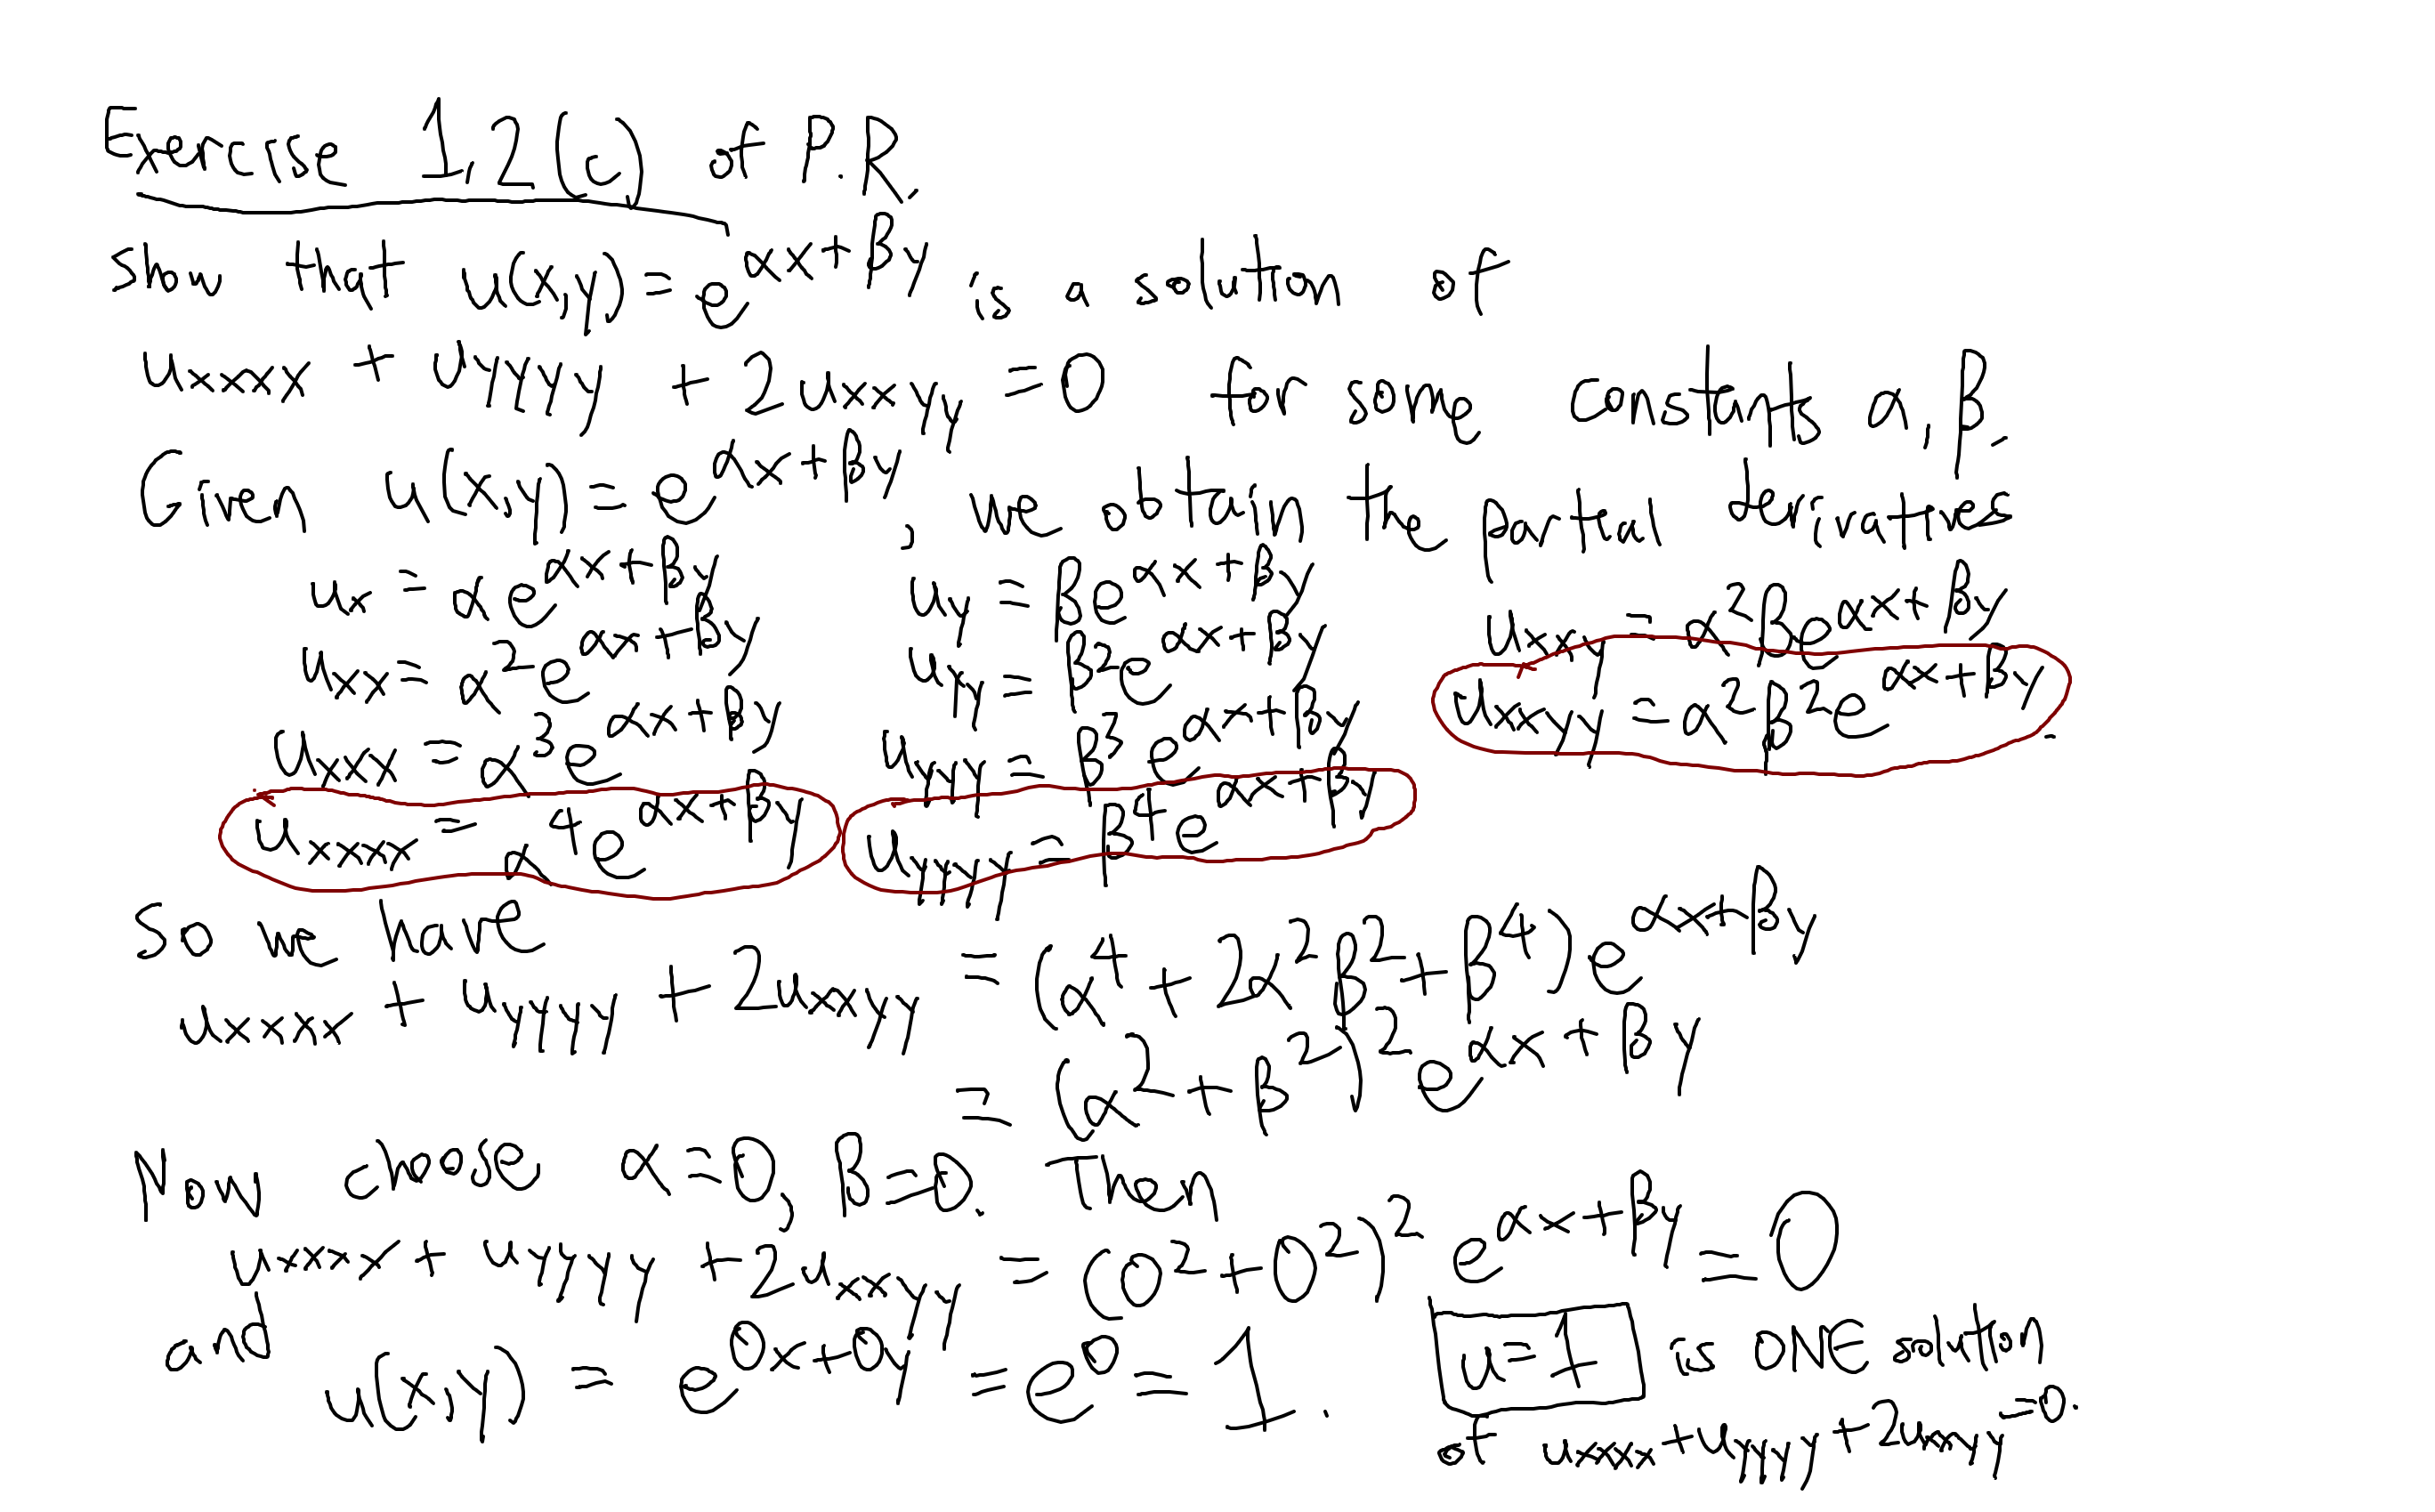 Exercise 1.2(c) of P.R.
show that u(x,y)=e^{αx+βy} is a solution of
u_{xxxx} + u_{yyyy} + 2u_{xxyy} = 0 for some constants α, β.
Given u(x,y)=e^{αx+βy}, we obtain the partial derivatives
u_x = αe^{αx+βy} u_y = βe^{αx+βy} u_{xxy} = α²βe^{αx+βy}
u_{xx} = α²e^{αx+βy} u_{yy} = β²e^{αx+βy} u_{xxyy} = α²β²e^{αx+βy}.
u_{xxx} = α³e^{αx+βy} u_{yyy} = β³e^{αx+βy}
u_{xxxx} = α⁴e^{αx+βy} u_{yyyy} = β⁴e^{αx+βy}
So we have
u_{xxxx} + u_{yyyy} + 2u_{xxyy} = (α⁴ + 2α²β² + β⁴)e^{αx+βy}
= (α² + β²)² e^{αx+βy}
Now choose α=0, β=0. Then
u_{xxxx} + u_{yyyy} + 2u_{xxyy} = (0² + 0²)² e^{αx+βy} = 0
and
u(x,y) = e^{0x+0y} = e⁰ = 1. u=1 is ONE solution
of u_{xxxx} + u_{yyyy} + 2u_{xxyy} = 0.